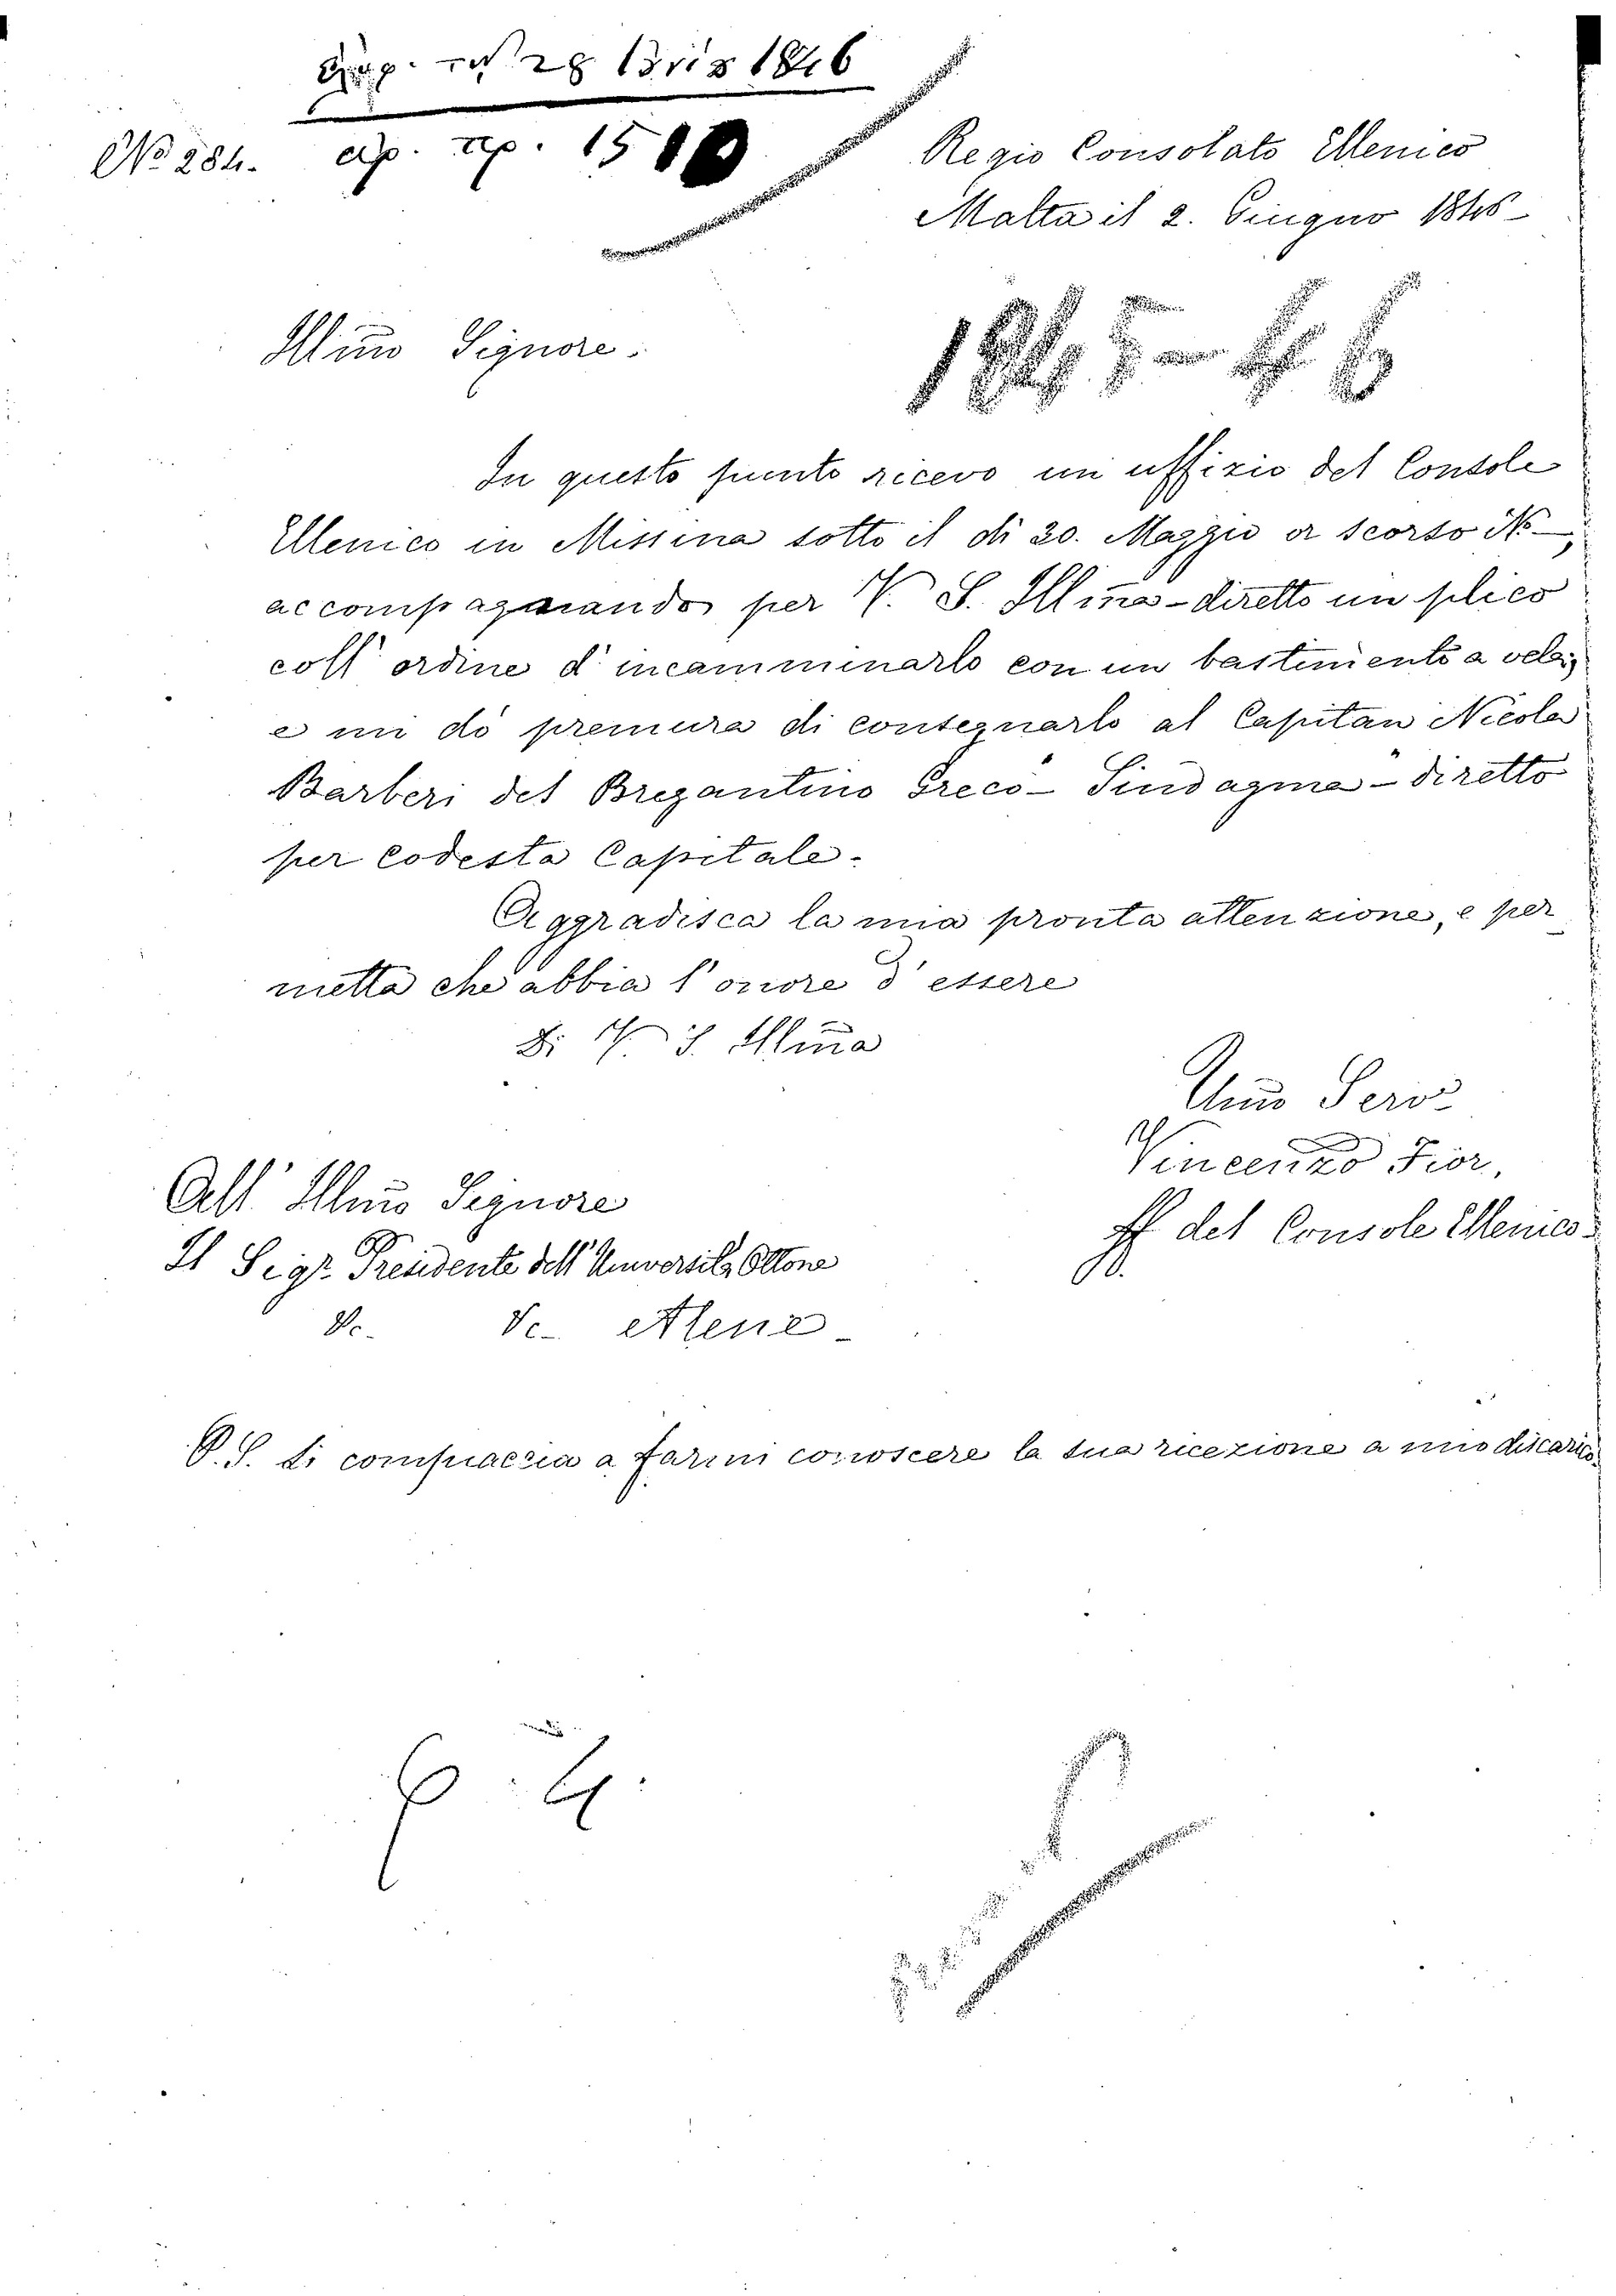 28 1846
No 284.
αρ. πρ. 15
Regio Consolato Ellenico
Malta il 2. Giugno 1846
Illmo Signore.
1845-46
In questo punto ricevo un uffizio del Console
Ellenico in Missina sotto il di 20. Maggio or scorso No —,
accompagnando per V. S. Illma - diretto un plico
coll' ordine d' incamminarlo con un bastimento a vela,
e mi dò premura di consegnarlo al Capitan Nicola
Barberi del Bregantino Greco - Sindagma - diretto
per codesta Capitale.
Aggradisca la mia pronta attenzione, e per
metta che abbia l' onore d' essere
Di V. S. Illma
Umo Servo
Vincenzo Fior,
ff del Console Ellenico
All' Illmo Signore
Il Sigr. Presidente dell' Università Ottone
&c. &c - Atene -
P.S. Si compiaccia a farmi conoscere la sua ricezione a mio discarico.